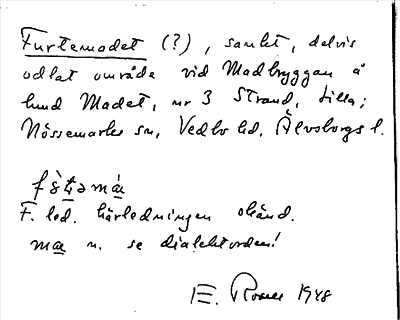 Furtemadet (?), sankt, delvis
odlat område vid Madbryggan å
hmd Madet, nr 3 Strand, Lilla;
Nössemarks sn, Vedbo hd, Älvsborgs l.
F. led. härledningen okänd.
ma n. se dialektorden!
E. 1948